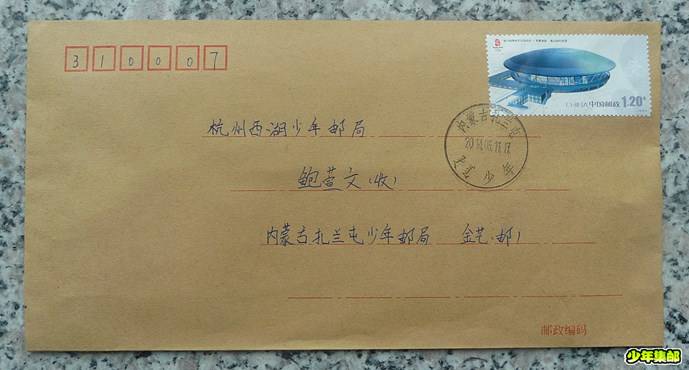 310007
中国邮政 1.20元
杭州西湖少年邮局
内蒙古扎兰屯
少年
鲍萱文(收)
内蒙古扎兰屯少年邮局 金艺(邮)
邮政编码
少年集邮